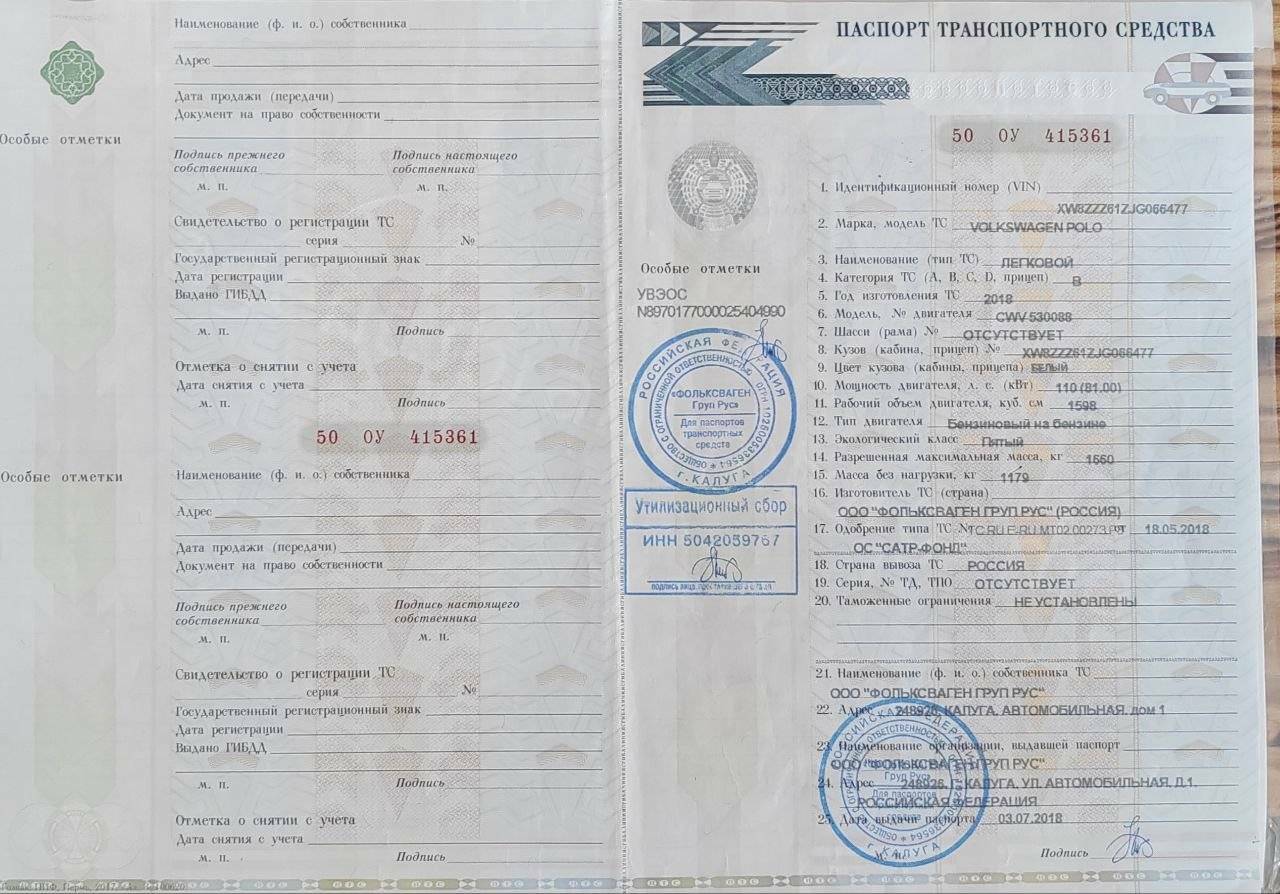 Наименование (ф. и. о.) собственника
Адрес
Дата продажи (передачи)
Документ на право собственности
Особые отметки
Подпись прежнего собственника
Подпись настоящего собственника
м. п.
м. п.
Свидетельство о регистрации ТС
серия №
Государственный регистрационный знак
Дата регистрации
Выдано ГИБДД
м. п. Подпись
Отметка о снятии с учета
Дата снятия с учета
м. п. Подпись
50 ОУ 415361
Особые отметки
Наименование (ф. и. о.) собственника
Адрес
Дата продажи (передачи)
Документ на право собственности
Подпись прежнего собственника
Подпись настоящего собственника
м. п.
м. п.
Свидетельство о регистрации ТС
серия №
Государственный регистрационный знак
Дата регистрации
Выдано ГИБДД
м. п. Подпись
Отметка о снятии с учета
Дата снятия с учета
м. п. Подпись
ПАСПОРТ ТРАНСПОРТНОГО СРЕДСТВА
50 ОУ 415361
Особые отметки
УВЭОС
N8970177000025404990
РОССИЙСКАЯ ФЕДЕРАЦИЯ
ОБЩЕСТВО С ОГРАНИЧЕННОЙ ОТВЕТСТВЕННОСТЬЮ
«ФОЛЬКСВАГЕН
Груп Рус»
Для паспортов
транспортных
средств
г. КАЛУГА
Утилизационный сбор
ИНН 5042059767
1. Идентификационный номер (VIN)
XW8ZZZ61ZJG066477
2. Марка, модель ТС VOLKSWAGEN POLO
3. Наименование (тип ТС) ЛЕГКОВОЙ
4. Категория ТС (A, B, C, D, прицеп) B
5. Год изготовления ТС 2018
6. Модель, № двигателя CWV 530088
7. Шасси (рама) № ОТСУТСТВУЕТ
8. Кузов (кабина, прицеп) № XW8ZZZ61ZJG066477
9. Цвет кузова (кабины, прицепа) БЕЛЫЙ
10. Мощность двигателя, л. с. (кВт) 110 (81.00)
11. Рабочий объем двигателя, куб. см 1598
12. Тип двигателя Бензиновый на бензине
13. Экологический класс Пятый
14. Разрешенная максимальная масса, кг 1660
15. Масса без нагрузки, кг 1179
16. Изготовитель ТС (страна)
ООО "ФОЛЬКСВАГЕН ГРУП РУС" (РОССИЯ)
17. Одобрение типа ТС № от 18.05.2018
ОС "САТР-ФОНД"
18. Страна вывоза ТС РОССИЯ
19. Серия, № ТД, ТПО ОТСУТСТВУЕТ
20. Таможенные ограничения НЕ УСТАНОВЛЕНЫ
21. Наименование (ф. и. о.) собственника ТС
ООО "ФОЛЬКСВАГЕН ГРУП РУС"
22. Адрес 248926, КАЛУГА, АВТОМОБИЛЬНАЯ, дом 1
23. Наименование организации, выдавшей паспорт
ООО "ФОЛЬКСВАГЕН ГРУП РУС"
24. Адрес 248926, Г. КАЛУГА, УЛ. АВТОМОБИЛЬНАЯ, Д.1.
РОССИЙСКАЯ ФЕДЕРАЦИЯ
25. Дата выдачи паспорта 03.07.2018
м. п. Подпись